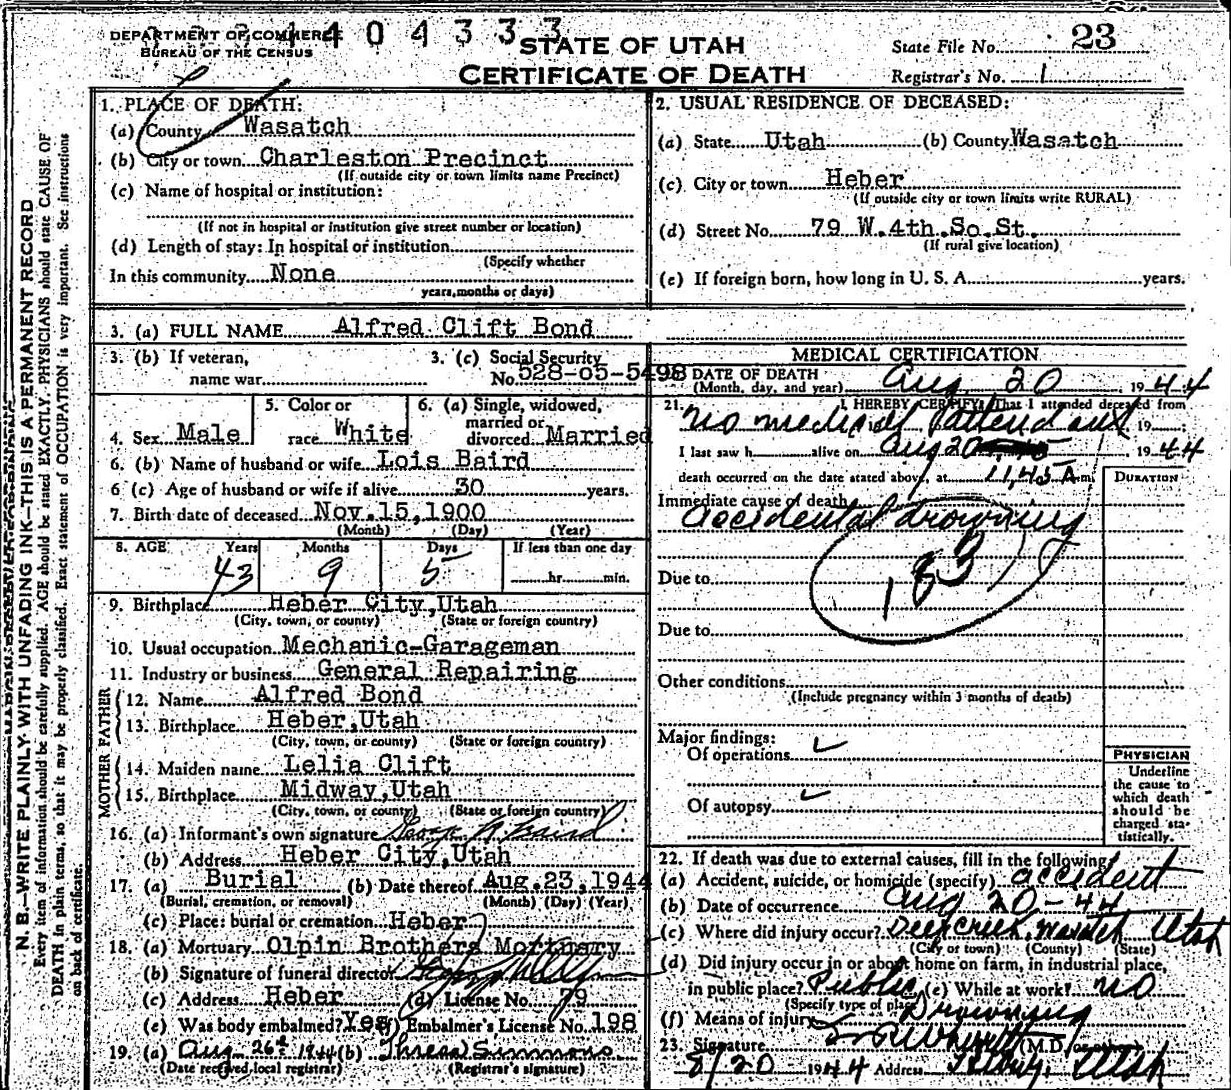 DEPARTMENT OF COMMERCE
BUREAU OF THE CENSUS
404333
STATE OF UTAH
CERTIFICATE OF DEATH
State File No. 23
Registrar's No. 1
N. B.—WRITE PLAINLY WITH UNFADING INK—THIS IS A PERMANENT RECORD
Every item of information should be carefully supplied. AGE should be stated EXACTLY. PHYSICIANS should state CAUSE OF
DEATH in plain terms, so that it may be properly classified. Exact statement of OCCUPATION is very important. See instructions
on back of certificate.
1. PLACE OF DEATH:
(a) County Wasatch
(b) City or town Charleston Precinct
(If outside city or town limits name Precinct)
(c) Name of hospital or institution:
(If not in hospital or institution give street number or location)
(d) Length of stay: In hospital or institution
(Specify whether
In this community None
years, months or days)
2. USUAL RESIDENCE OF DECEASED:
(a) State Utah (b) County Wasatch
(c) City or town Heber
(If outside city or town limits write RURAL)
(d) Street No. 79 W. 4th. So. St.
(If rural give location)
(e) If foreign born, how long in U. S. A. years.
3. (a) FULL NAME Alfred Clift Bond
3. (b) If veteran,
name war
3. (c) Social Security
No. 528-05-5498
4. Sex Male
5. Color or
race White
6. (a) Single, widowed,
married or
divorced Married
6. (b) Name of husband or wife Lois Baird
6 (c) Age of husband or wife if alive 30 years.
7. Birth date of deceased Nov. 15, 1900
(Month) (Day) (Year)
8. AGE Years Months Days If less than one day
43 9 5 hr. min.
9. Birthplace Heber City, Utah
(City, town, or county) (State or foreign country)
10. Usual occupation Mechanic-Garageman
11. Industry or business General Repairing
FATHER
12. Name Alfred Bond
13. Birthplace Heber, Utah
(City, town, or county) (State or foreign country)
MOTHER
14. Maiden name Lelia Clift
15. Birthplace Midway, Utah
(City, town, or county) (State or foreign country)
16. (a) Informant's own signature Baird
(b) Address Heber City, Utah
17. (a) Burial (b) Date thereof Aug. 23, 1944
(Burial, cremation, or removal) (Month) (Day) (Year)
(c) Place: burial or cremation Heber
18. (a) Mortuary Olpin Brothers Mortuary
(b) Signature of funeral director
(c) Address Heber (d) License No. 79
(e) Was body embalmed? Yes (f) Embalmer's License No. 198
19. (a) Aug 26th 1944 (b) Thresa Simmons
(Date received, local registrar) (Registrar's signature)
MEDICAL CERTIFICATION
DATE OF DEATH
(Month, day, and year) Aug 20 1944
21. I HEREBY CERTIFY That I attended deceased from
no medical attendant 19
I last saw h alive on Aug 20 1944
death occurred on the date stated above, at 11,45 A m.
DURATION
Immediate cause of death
accidental drowning
183
Due to
Due to
Other conditions
(Include pregnancy within 3 months of death)
Major findings:
Of operations
Of autopsy
PHYSICIAN
Underline
the cause to
which death
should be
charged sta-
tistically.
22. If death was due to external causes, fill in the following:
(a) Accident, suicide, or homicide (specify) accident
(b) Date of occurrence Aug 20-44
(c) Where did injury occur? Deercreek Wasatch Utah
(City or town) (County) (State)
(d) Did injury occur in or about home on farm, in industrial place,
in public place? Public (e) While at work? no
(Specify type of place)
(f) Means of injury Drowning
23. Signature (M.D.
8/20 1944 Address Heber, Utah